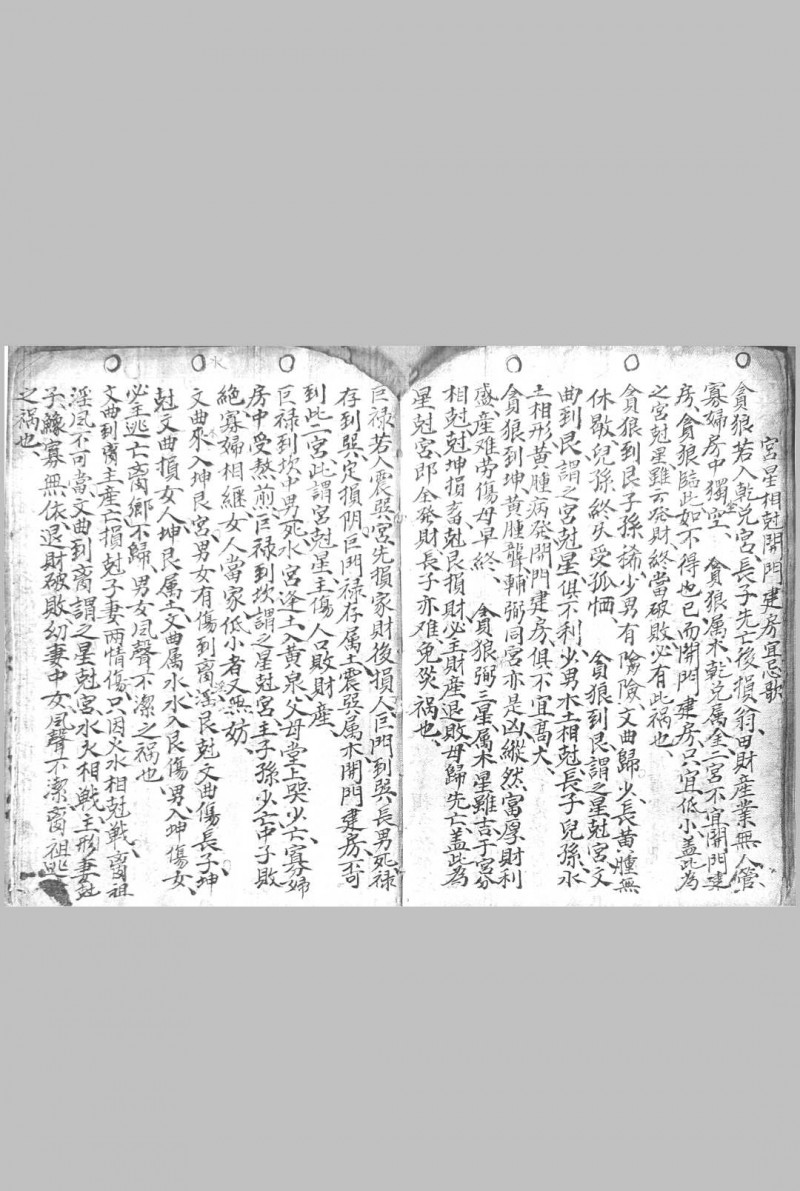 宮星相尅開門建房宜忌歌
貪狼若入乾兌宮長子先亡後損翁田財產業無人管
寡婦房中獨坐空 貪狼属木乾兌属金二宮不宜開門建
房貪狼臨此如不得也已而開門建房只宜低小盖此為
之宮尅星雖云發財終當破敗必有此禍也
貪狼到艮子孫稀少男有陰險文曲歸少長黃腫無
休歇兒孫終久受孤恓 貪狼到艮謂之星尅宮文
曲到艮謂之宮尅星俱不利少男木土相尅長子兒孫水
土相形黃腫病發開門建房俱不宜高大
貪狼到坤黃腫聾輔弼同宮亦是凶縱然富厚財利
盛產难劳傷母早終 貪狼弼三星属木星雖吉于宮分
相尅尅坤損畜尅艮損財必主財產退敗母歸先亡盖此為
星尅宮即全發財長子亦难免災禍也
巨禄若入震巽宮先損家財後損人巨門到巽長男死禄
存到巽定損阴巨門禄存属土震巽属木開門建房不可
到此二宮此謂宮尅星主傷人口敗財產
巨禄到坎中男死水宮逢土入黃泉父母堂上哭少亡寡婦
房中受熬煎巨禄到坎謂之星尅宮主子孫少亡中子敗
絕寡婦相繼女人當家低小者又無妨
文曲來入坤艮宮男女有傷到離滛艮尅文曲傷長子坤
尅文曲損女人坤艮属土文曲属水水入艮傷男入坤傷女
必主逃亡离鄉不歸男女風聲不潔之禍也
文曲到离主產亡損尅子妻两情傷只因火水相尅戰离祖
淫風不可當文曲到离謂之星尅宮水火相戰主形妻尅
子鰥寡無依退財破敗幼妻中女風聲不潔离祖逃
之禍也